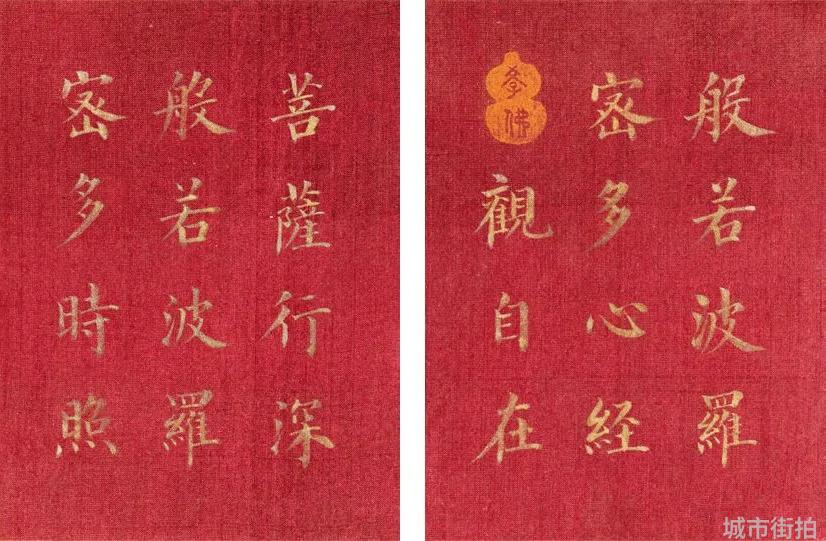 般若波羅
密多心経
觀自在
菩薩行深
般若波羅
密多時照
城市街拍